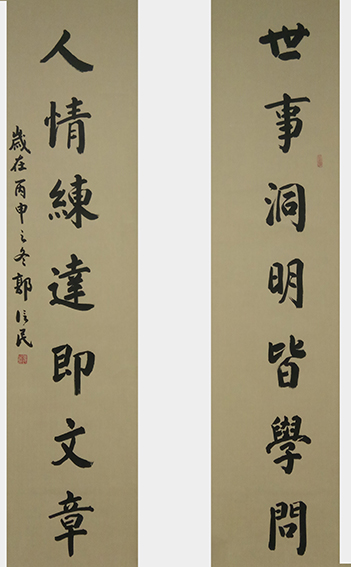 世事洞明皆學問
人情練達即文章
歲在丙申之冬郭信民